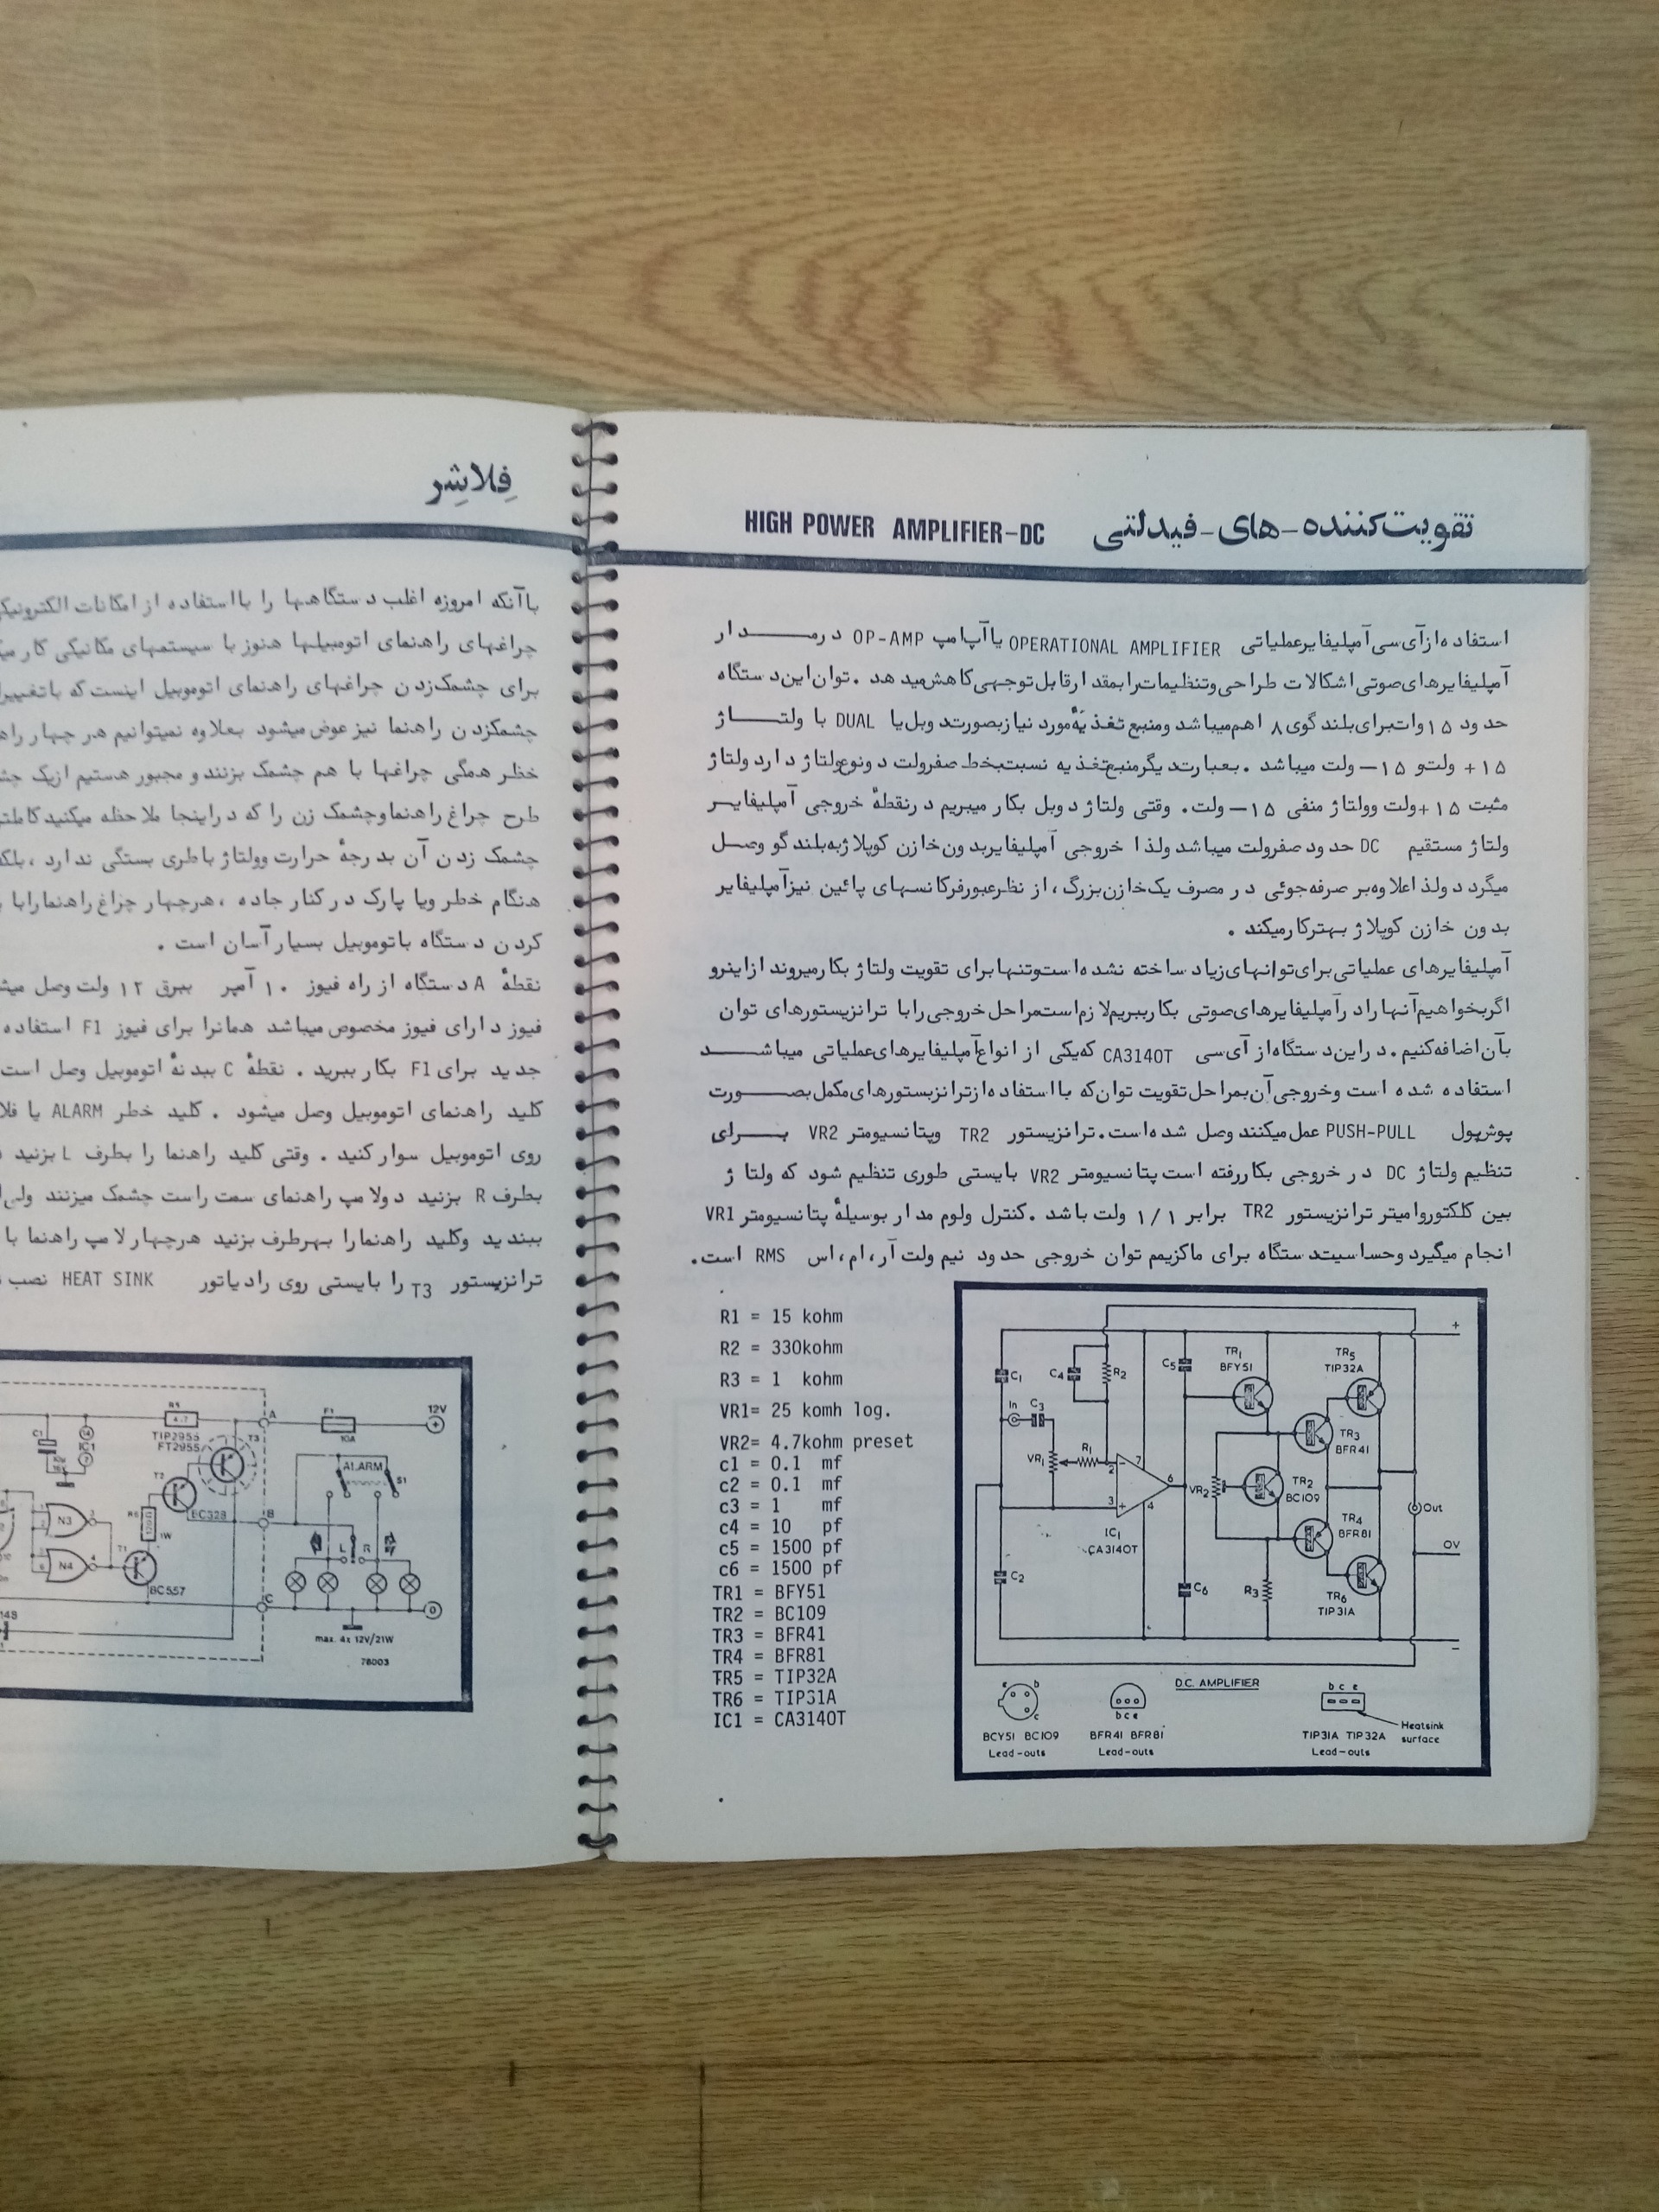 تقویت‌کننده-های-فیدلتی HIGH POWER AMPLIFIER-DC
استفاده ازآی‌سی آمپلیفایرعملیاتی OPERATIONAL AMPLIFIER یاآپ‌امپ OP-AMP درمدار
آمپلیفایرهای‌صوتی اشکالات طراحی‌وتنظیمات‌رابمقدارقابل‌توجهی‌کاهش‌میدهد .توان‌این‌دستگاه
حدود ۱۵وات‌برای‌بلندگوی ۸ اهم‌میباشد ومنبع تغذیهٔ‌مورد نیازبصورت‌دوبل‌یا DUAL با ولتاژ
۱۵+ ولت‌و ۱۵- ولت میباشد .بعبارت‌دیگرمنبع‌تغذیه نسبت‌بخط صفرولت دونوع‌ولتاژ دارد ولتاژ
مثبت ۱۵+ولت وولتاژ منفی ۱۵- ولت. وقتی ولتاژ دوبل بکار میبریم درنقطهٔ خروجی آمپلیفایر
ولتاژ مستقیم DC حدود صفرولت میباشد ولذا خروجی آمپلیفایربدون‌خازن کوپلاژبه‌بلندگو وصل
میگردد ولذ اعلاوه‌بر صرفه‌جوئی در مصرف یک‌خازن‌بزرگ ، از نظرعبورفرکانسهای پائین نیزآمپلیفایر
بدون خازن کوپلاژ بهترکارمیکند .
آمپلیفایرهای عملیاتی برای‌توانهای‌زیاد ساخته نشده‌است‌وتنهابرای تقویت ولتاژ بکارمیروند ازاینرو
اگربخواهیم‌آنهاراد رآمپلیفایرهای‌صوتی بکارببریم‌لازم‌است‌مراحل‌خروجی‌رابا ترانزیستورهای توان
بآن‌اضافه‌کنیم .دراین‌دستگاه‌از آی‌سی CA3140T که‌یکی از انواع‌آمپلیفایرهای‌عملیاتی میباشد
استفاده شده است وخروجی‌آن‌بمراحل‌تقویت توان‌که بااستفاده ازترانزیستورهای‌مکمل‌بصورت
پوش‌پول PUSH-PULL عمل‌میکنند وصل شده‌است.ترانزیستور TR2 وپتانسیومتر VR2 برای
تنظیم ولتاژ DC در خروجی بکاررفته است پتانسیومتر VR2 بایستی طوری تنظیم شود که ولتاژ
بین کلکتوروامیتر ترانزیستور TR2 برابر ۱/۱ ولت باشد .کنترل ولوم مدار بوسیلهٔ پتانسیومتر VR1
انجام میگیرد وحساسیت‌دستگاه برای ماکزیمم توان خروجی حدود نیم ولت آر،ام،اس RMS است.
R1 = 15 kohm
R2 = 330kohm
R3 = 1 kohm
VR1= 25 komh log.
VR2= 4.7kohm preset
c1 = 0.1 mf
c2 = 0.1 mf
c3 = 1 mf
c4 = 10 pf
c5 = 1500 pf
c6 = 1500 pf
TR1 = BFY51
TR2 = BC109
TR3 = BFR41
TR4 = BFR81
TR5 = TIP32A
TR6 = TIP31A
IC1 = CA3140T
+
C1
C4
R2
C5
TR1
BFY51
TR5
TIP32A
In C3
TR3
BFR41
VR1
R1
2
7
6
3
4
VR2
TR2
BC109
Out
IC1
CA3140T
TR4
BFR81
0V
C2
C6
R3
TR6
TIP31A
-
D.C. AMPLIFIER
e b c
b c e
b c e
Heatsink
surface
BCY51 BC109
Lead-outs
BFR41 BFR81
Lead-outs
TIP31A TIP32A
Lead-outs
فِلاشِر
باآنکه امروزه اغلب دستگاهها را بااستفاده از امکانات
چراغهای راهنمای اتومبیلها هنوز با سیستمهای مکانیکی کار
برای چشمک‌زدن چراغهای راهنمای اتوموبیل اینست که
چشمکزدن راهنما نیز عوض میشود بعلاوه نمیتوانیم هر چهار
خطر همگی چراغها با هم چشمک بزنند و مجبور هستیم ازیک
طرح چراغ راهنماوچشمک زن را که دراینجا ملاحظه میکنید
چشمک زدن آن بدرجهٔ حرارت وولتاژ باطری بستگی ندارد ،
هنگام خطر ویا پارک درکنار جاده ،هرچهار چراغ راهنمارابا
کردن دستگاه باتوموبیل بسیار آسان است .
نقطهٔ A دستگاه از راه فیوز ۱۰ آمپر ببرق ۱۲ ولت وصل
فیوز دارای فیوز مخصوص میباشد همانرا برای فیوز F1 استفاده
جدید برای F1 بکار ببرید . نقطهٔ C ببدنهٔ اتوموبیل وصل است
کلید راهنمای اتوموبیل وصل میشود . کلید خطر ALARM یا
روی اتوموبیل سوار کنید . وقتی کلید راهنما را بطرف L بزنید
بطرف R بزنید دولامپ راهنمای سمت راست چشمک میزنند
ببندید وکلید راهنمارا بهرطرف بزنید هرچهارلامپ راهنما با
ترانزیستور T3 را بایستی روی رادیاتور HEAT SINK نصب
R4
4.7
A
F1
10A
12V
TIP2955
FT2955
T3
C1
IC1
T2
ALARM
S1
BC328
B
N3
R6
1W
L R
N4
T1
BC557
C
max. 4x 12V/21W
78003